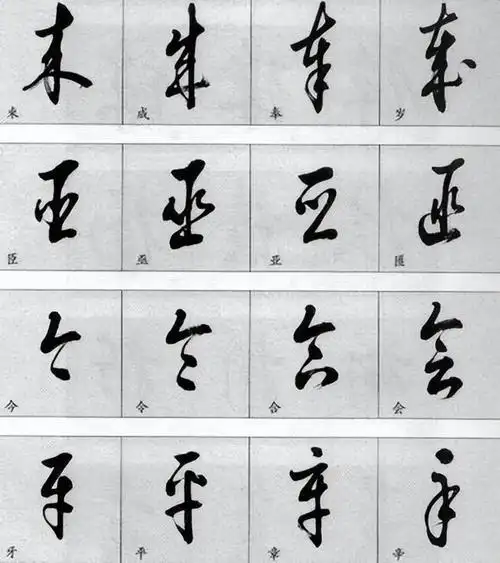 来 成 奉 岁
臣 亟 亚 匯
今 令 合 会
牙 平 章 辛